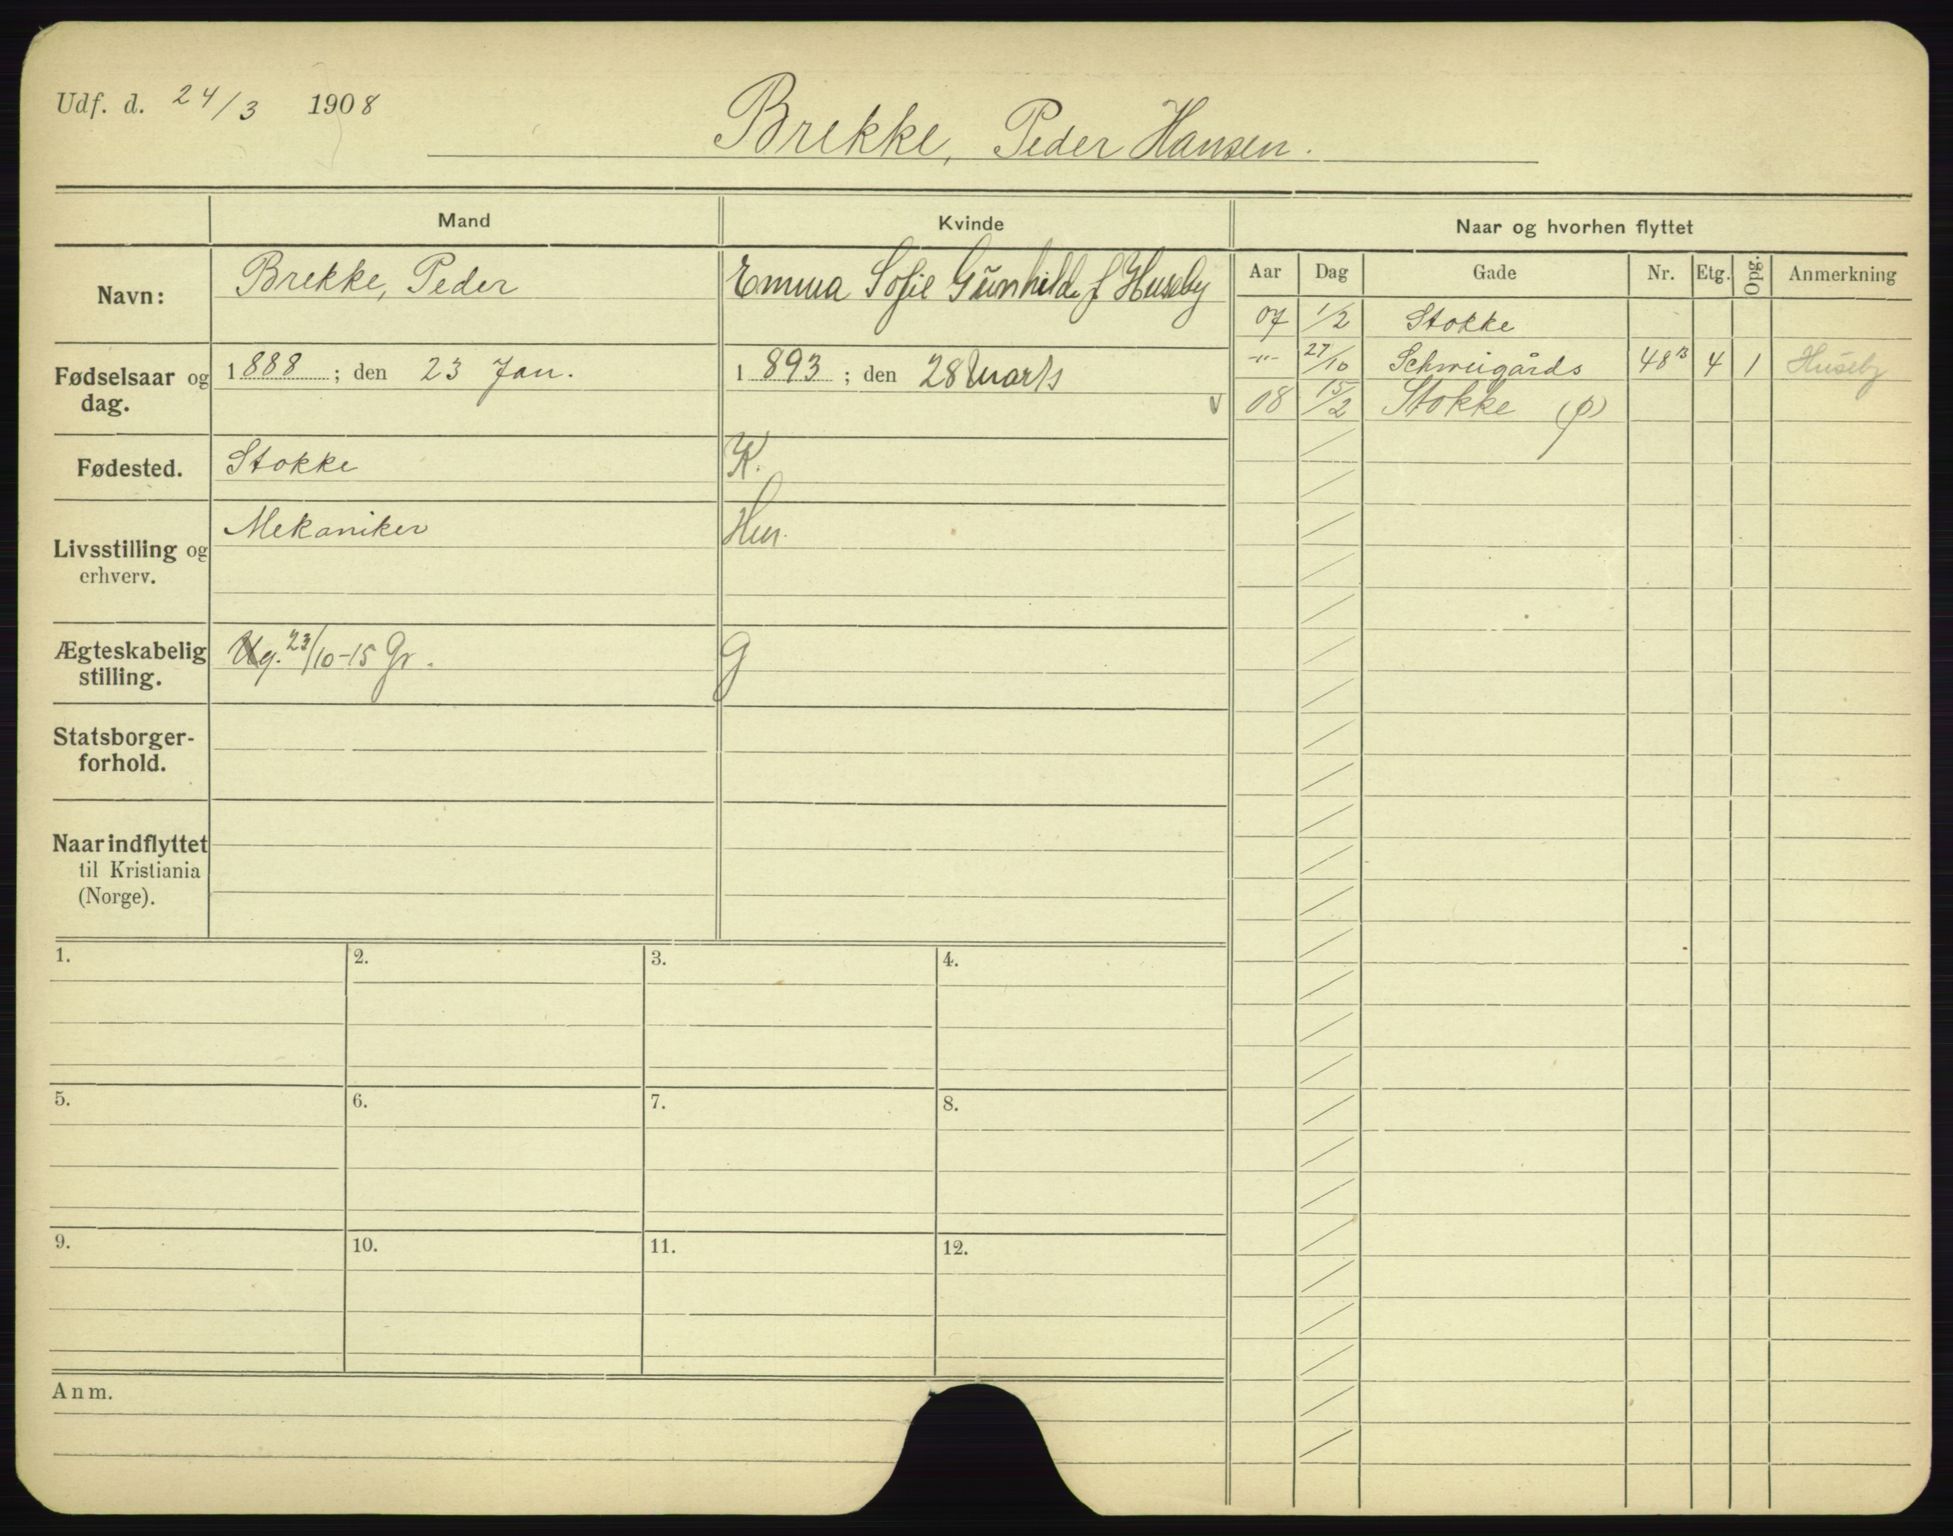 Udf. d. 24/3 1908
Brekke, Peder Hansen.
Mand
Kvinde
Naar og hvorhen flyttet
Navn:
Brekke, Peder
Emma Sofie Gunhilde f Huseby
Aar Dag Gade Nr. Etg. Opg. Anmerkning
07 1/2 Stokke
-"- 27/10 Schweigårds 48B 4 1 Huseby
08 15/2 Stokke (p)
Fødselsaar og dag.
1888; den 23 Jan.
1893; den 28 Marts
Fødested.
Stokke
K.
Livsstilling og erhverv.
Mekaniker
Hus.
Ægteskabelig stilling.
Ug. 23/10-15 Gr.
G
Statsborgerforhold.
Naar indflyttet til Kristiania (Norge).
1. 2. 3. 4.
5. 6. 7. 8.
9. 10. 11. 12.
Anm.